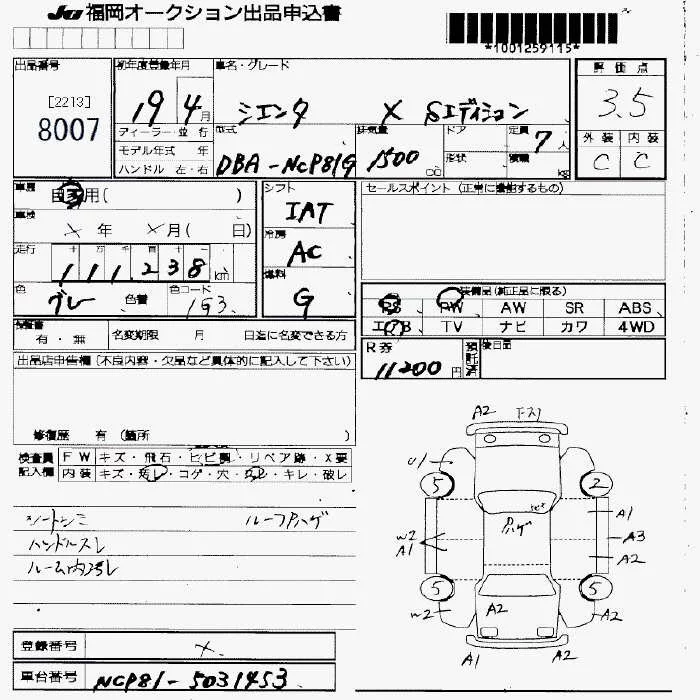 JU 福岡オークション出品申込書
*1001259115*
出品番号
[2213]
8007
初年度登録年月
19 年 4 月
ディーラー・並行
モデル年式 年
ハンドル 左・右
車名・グレード
シエンタ X Sエディション
型式
DBA-NCP81G
排気量
1500 cc
ドア
形状
定員
7 人
積載 kg
評価点
3.5
外装 内装
C C
車歴
自家用( )
車検
X 年 X 月( 日)
走行
十 万 千 百 十 一
111,238 km
色
グレー
色替
色コード
1G3
シフト
IAT
冷房
AC
燃料
G
セールスポイント(正常に機能するもの)
装備品(純正品に限る)
PS PW AW SR ABS
エアB TV ナビ カワ 4WD
有・無 名変期限 月 日迄に名変できる方
R券
11200 円
預託済
後日品
出品店申告欄(不良内容・欠品など具体的に記入して下さい)
修復歴 有(箇所 )
検査員記入欄
FW キズ・飛石・ヒビ割・リペア跡・X要
内装 キズ・汚レ・コゲ・穴・スレ・キレ・破レ
シートシミ ルーフPハゲ
ハンドルスレ
ルーム内汚レ
登録番号
X
車台番号
NCP81-5031453
A2 下スリ
U1
5 2
A1
Pハゲ
W2
A1
A3
A2
5 5
W2
A2
A2
A1 A2